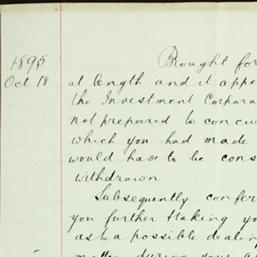 1895 Brought for
Oct 18 at length and it appe
the Investment Corpora
not prepared to concur
which you had made
would have to be cons
withdrawn
Subsequently confer
you further taking yo
as to a possible dealin
matter during your a